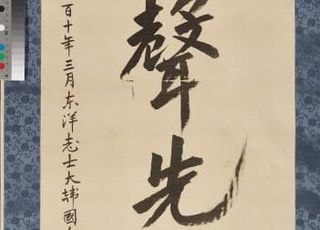 聲先
百十年三月东洋志士大韓國